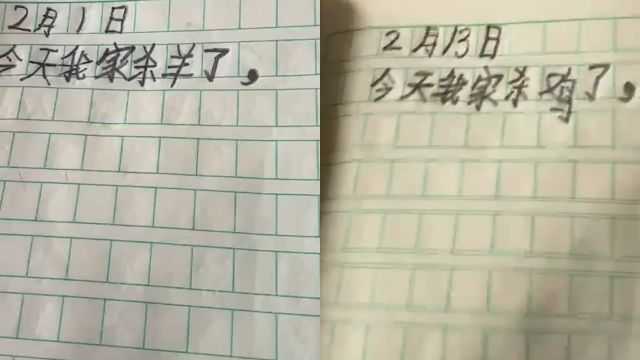 2月1日
今天我家杀羊了,
2月13日
今天我家杀鸡了,